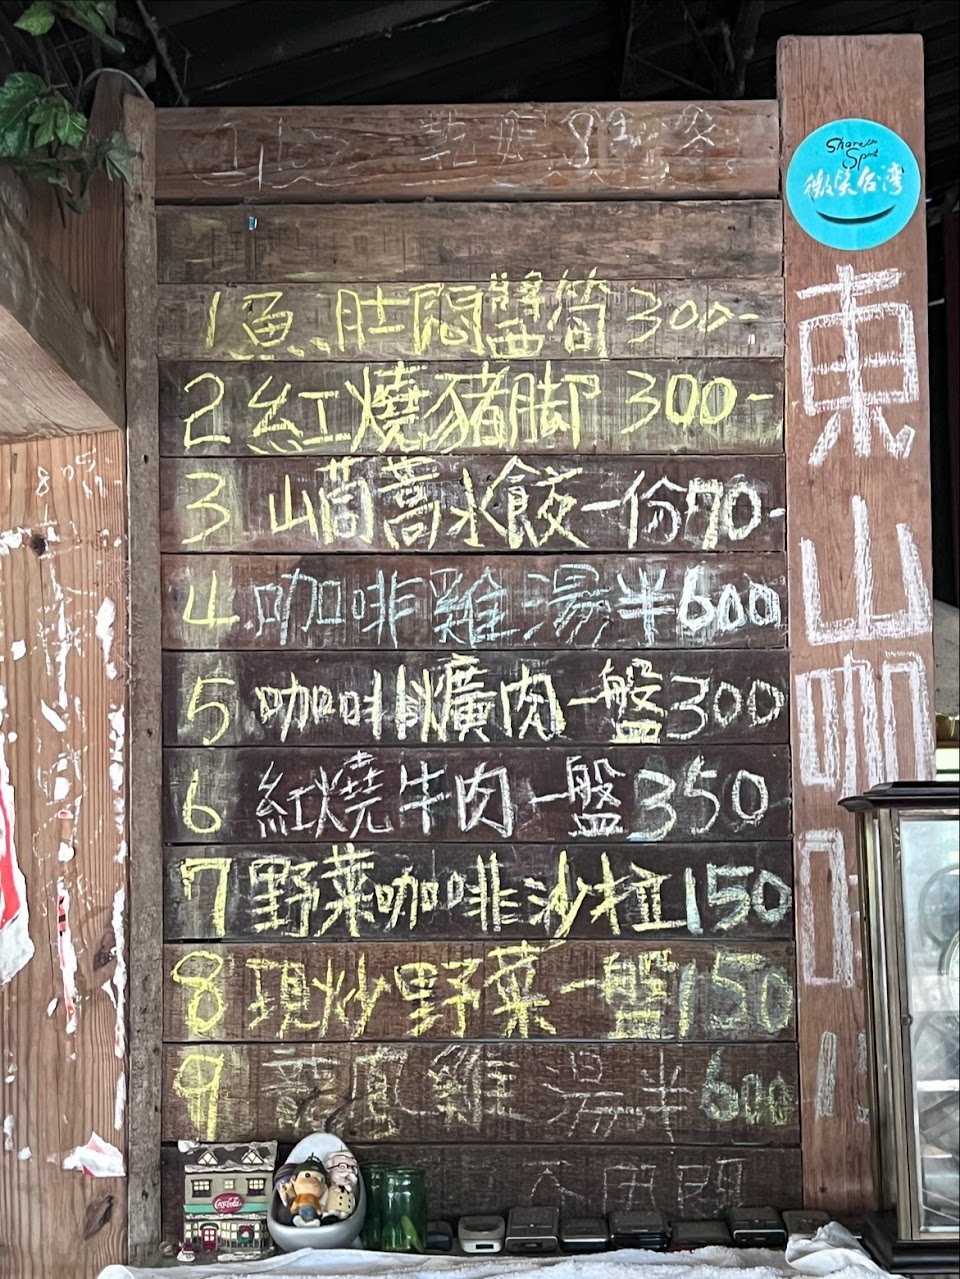 Share the Spirit
微笑台湾
東山咖啡
1魚肚悶醬筍300-
2紅燒豬脚300-
3山茼蒿水餃一份70-
4咖啡雞湯半600
5咖啡爌肉一盤300
6紅燒牛肉一盤350
7野菜咖啡沙拉150
8現炒野菜一盤150
9龍鳳雞湯半600
Coca-Cola